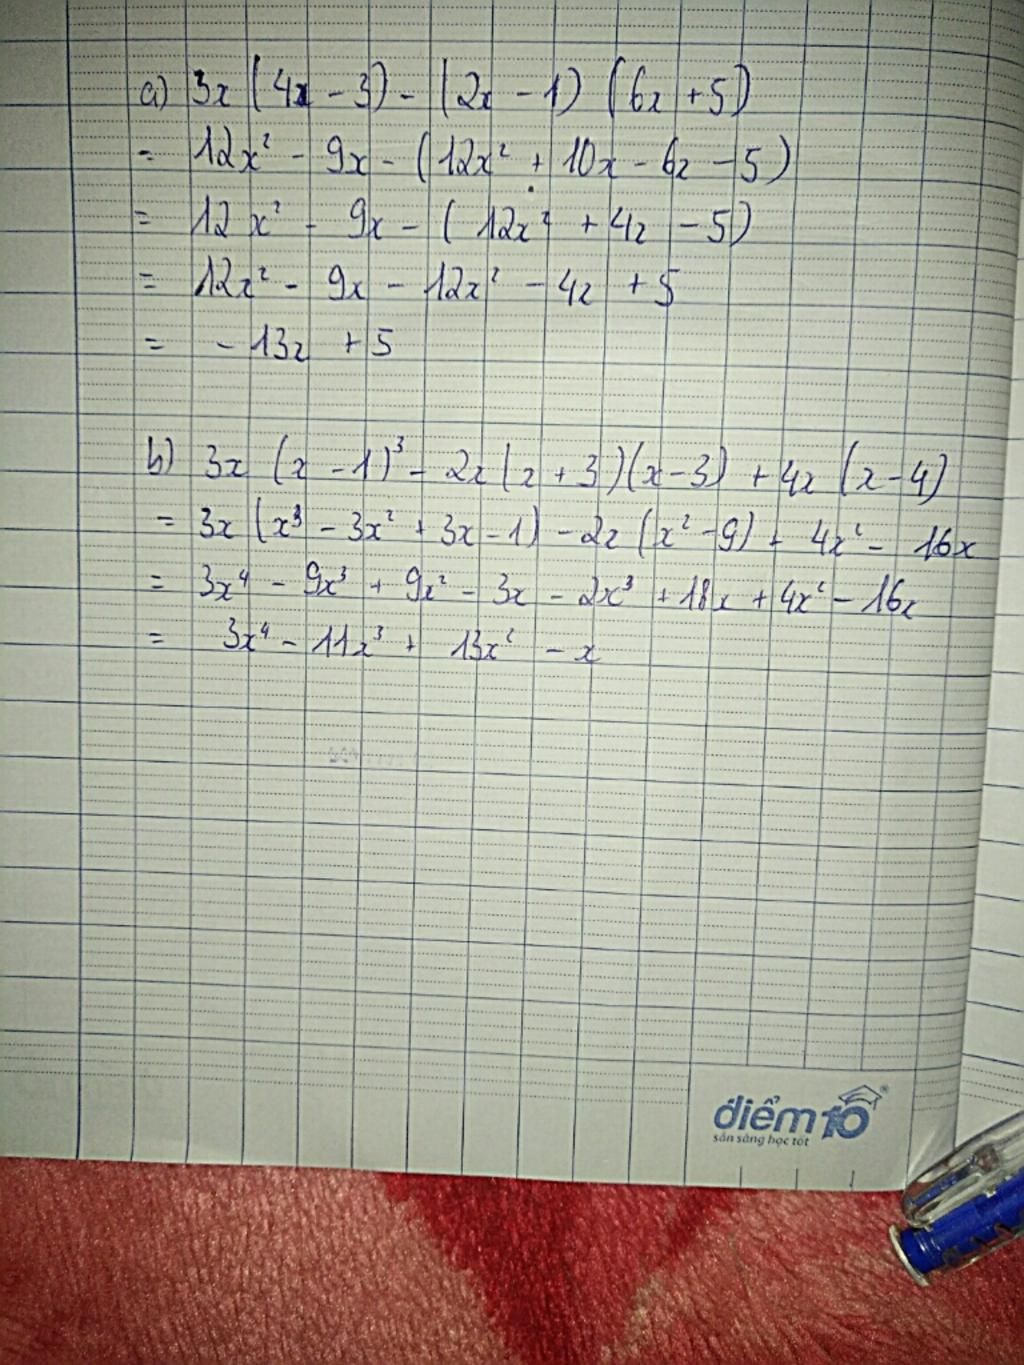 a) 3x (4x - 3) - (2x - 1) (6x + 5)
= 12x² - 9x - (12x² + 10x - 6x - 5)
= 12x² - 9x - (12x² + 4x - 5)
= 12x² - 9x - 12x² - 4x + 5
= - 13x + 5
b) 3x (x - 1)³ - 2x (x + 3)(x - 3) + 4x (x - 4)
= 3x (x³ - 3x² + 3x - 1) - 2x (x² - 9) + 4x² - 16x
= 3x⁴ - 9x³ + 9x² - 3x - 2x³ + 18x + 4x² - 16x
= 3x⁴ - 11x³ + 13x² - x
điểm10®
sẵn sàng học tốt